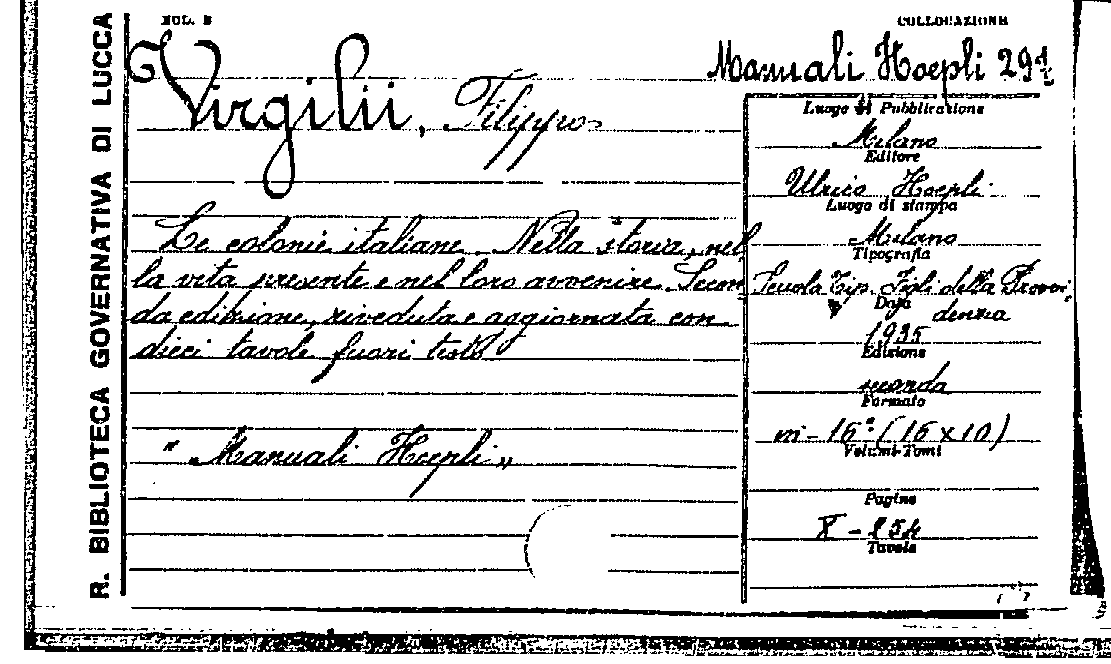 R. BIBLIOTECA GOVERNATIVA DI LUCCA
MOD. B
COLLOCAZIONE
Manuali Hoepli 291
Virgilii, Filippo
Le colonie italiane. Nella storia, nel
la vita presente e nel loro avvenire. Secon
da edizione, riveduta e aggiornata con
dieci tavole fuori testo
"Manuali Hoepli"
Luogo di Pubblicazione
Milano
Editore
Ulrico Hoepli
Luogo di stampa
Milano
Tipografia
Scuola Tip. Figli della Provvi
denzia
Data
1935
Edizione
seconda
Formato
in-16° (16x10)
Volumi-Tomi
Pagine
X-254
Tavole